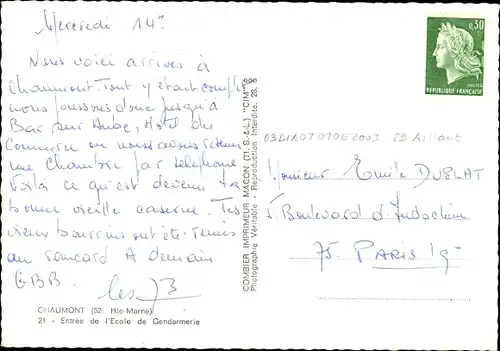 Mercredi 14h
Nous voici arrivés à
Chaumont. Tout y étant complet
nous poussons donc jusqu'à
Bar sur Aube, Hotel du
Commerce où nous avons retenu
une chambre par téléphone
Voilà ce qu'est devenu ta
bonne vieille caserne. Tes
vieux bourrins ont été remis
au rancard A demain
G.B.B.
les JB
CHAUMONT (52. Hte-Marne)
21 - Entrée de l'Ecole de Gendarmerie
COMBIER IMPRIMEUR MACON (71. S.-&-L.) "CIM"
Photographie Véritable - Reproduction Interdite.
0,30
REPUBLIQUE FRANÇAISE
Monsieur Emile DUBLAT
5 Boulevard d'Indochine
75. PARIS 19e